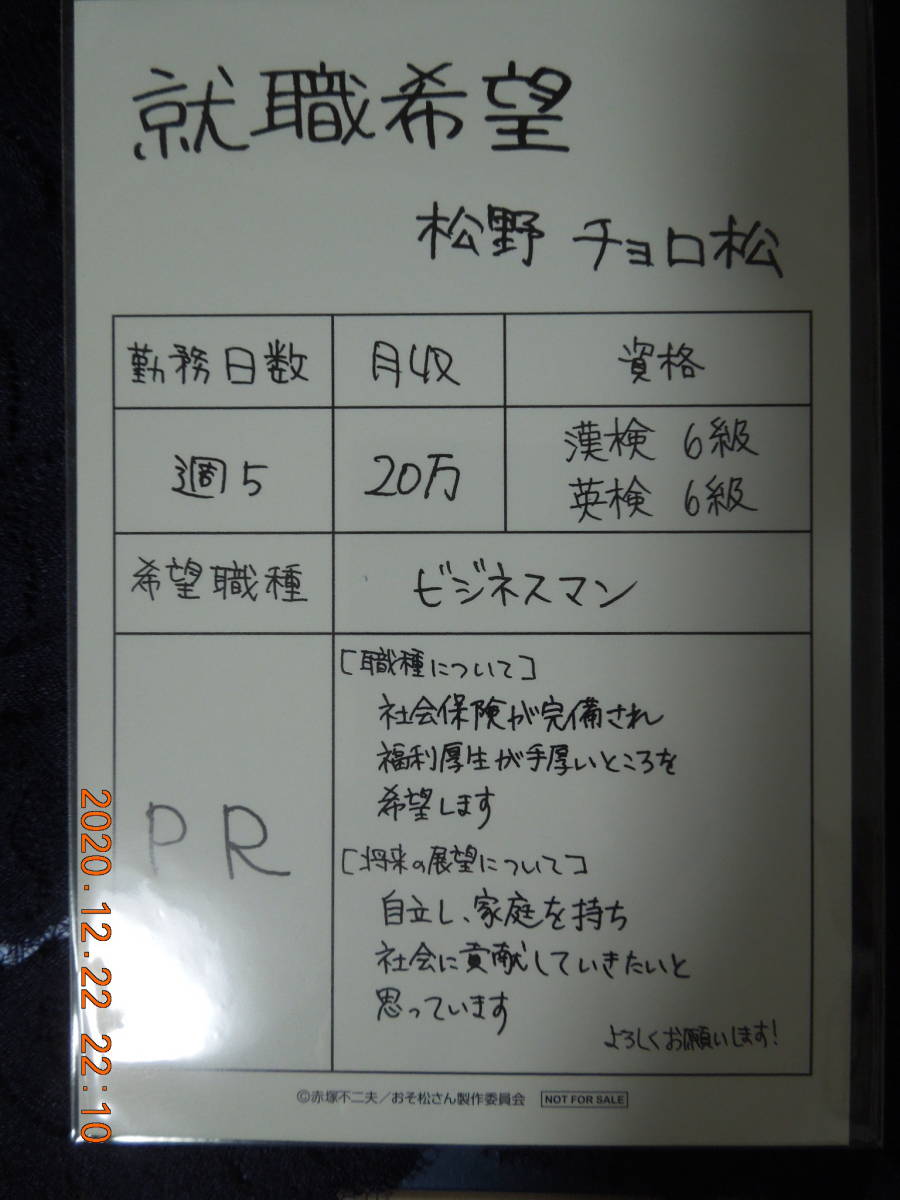 就職希望
松野 チョロ松
勤務日数 月収 資格
週5 20万 漢検 6級
英検 6級
希望職種 ビジネスマン
PR
[職種について]
社会保険が完備され
福利厚生が手厚いところを
希望します
[将来の展望について]
自立し、家庭を持ち
社会に貢献していきたいと
思っています
よろしくお願いします!
©赤塚不二夫/おそ松さん製作委員会 NOT FOR SALE
2020.12.22 22:10